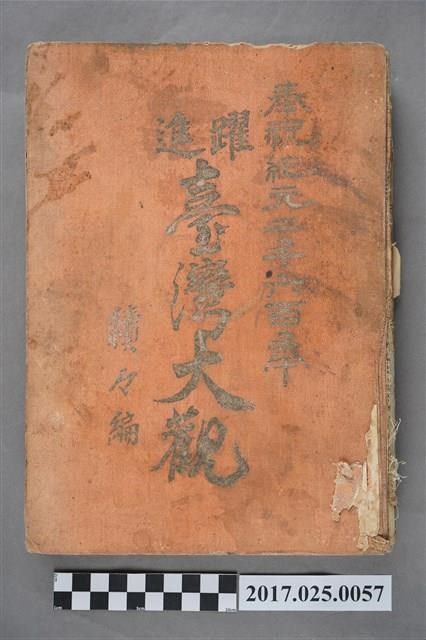 奉祝紀元二千六百年
躍進
臺灣大觀
續々編
2017.025.0057